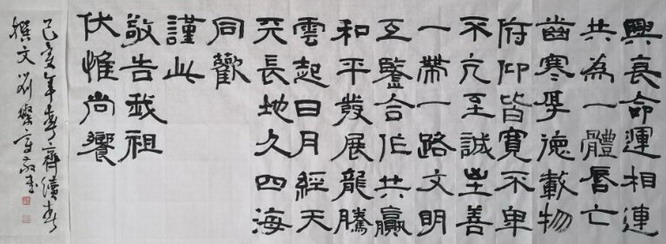 興衰命運相連
共為一體唇亡
齒寒厚德載物
府仰皆寬不卑
不亢至誠至善
一帶一路文明
互鑒合作共贏
和平發展龍騰
雲起日月經天
天長地久四海
同歡
謹此
敬告我祖
伏惟尚饗
己亥年春齊
撰文劉